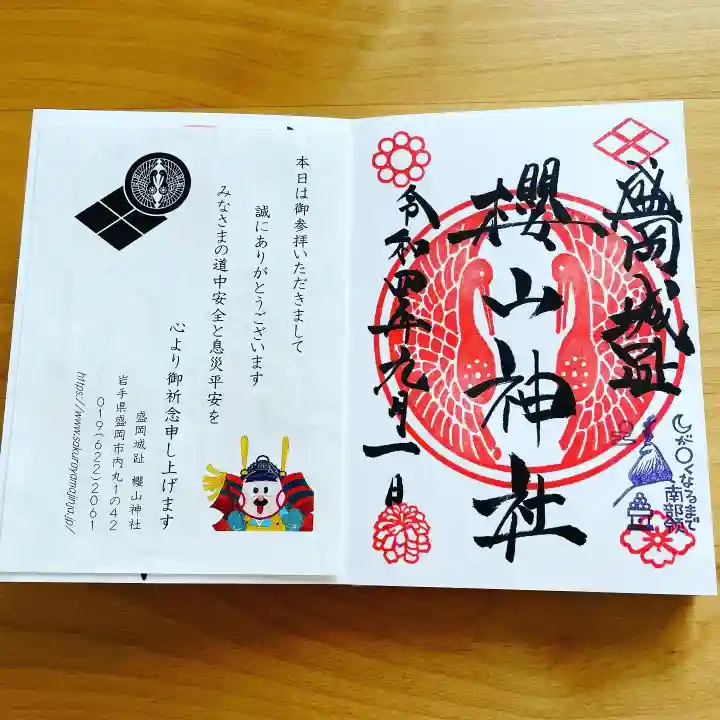 盛岡城趾
櫻山神社
令和四年九月一日
が〇くなるまで
南部領
本日は御参拝いただきまして
誠にありがとうございます
みなさまの道中安全と息災平安を
心より御祈念申し上げます
盛岡城趾 櫻山神社
岩手県盛岡市内丸1の42
019(622)2061
https://www.sakurayamajinja.jp/